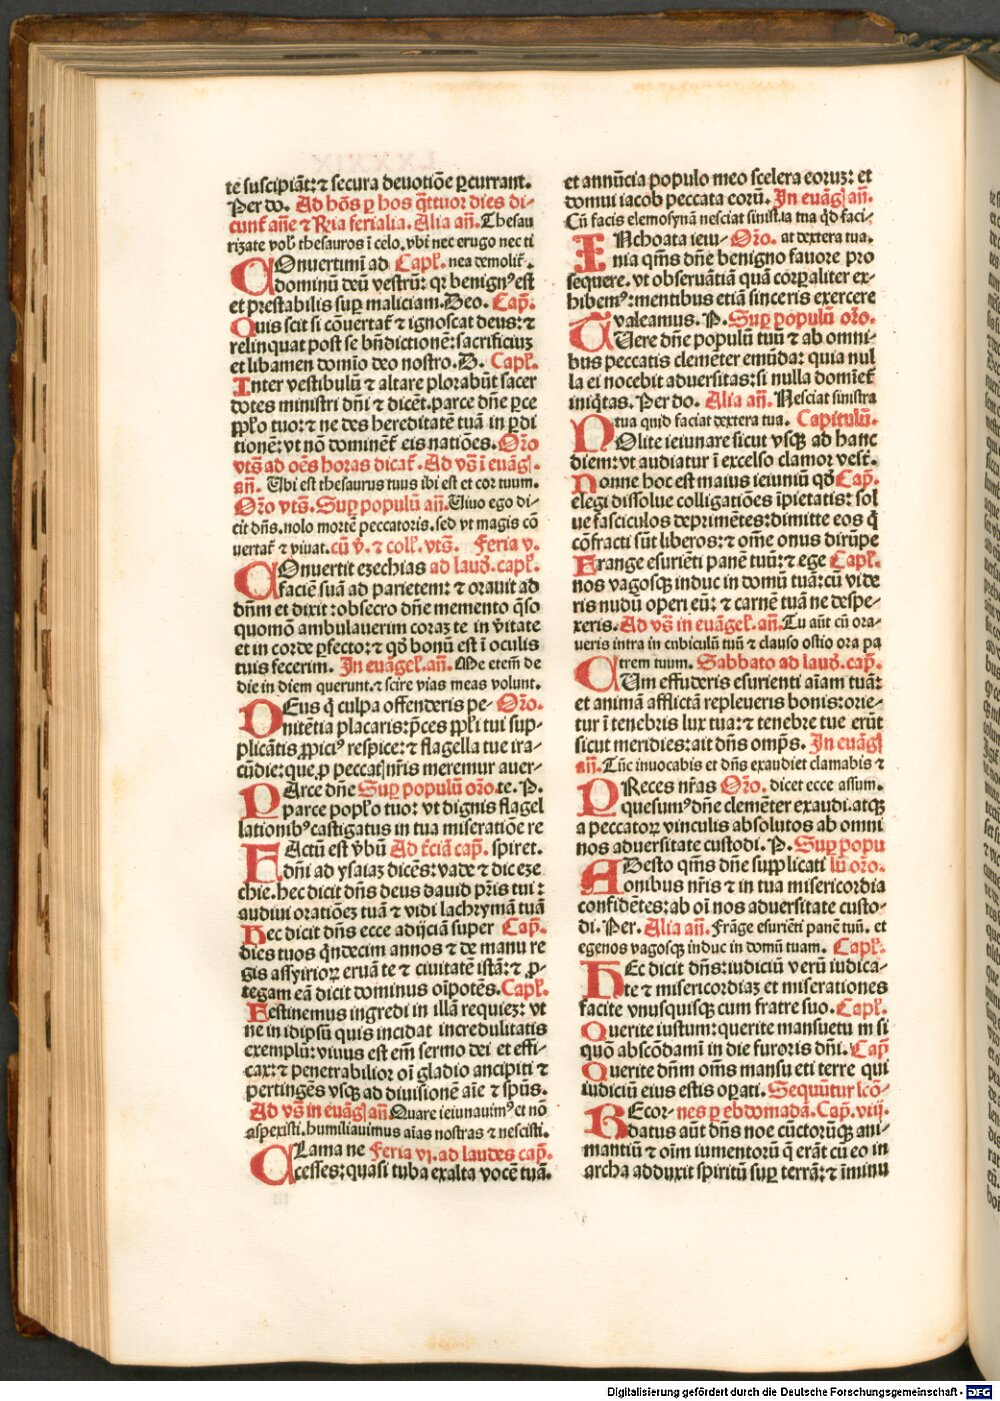 te suscipiāt: ⁊ secura deuotiōe ꝑcurrant.
Per do. Ad hōs ꝑ hos q̄ttuor dies di-
cunt᷒ añe ⁊ Rr̄ia ferialia. Alia añ. Thesau
rizate vob̄ thesauros ī celo. vbi nec erugo nec ti
COnuertimī ad Capl̄. nea demolit᷒.
dominū deū vestrū: qꝛ benignꝰ est
et prestabilis suꝑ maliciam. Deo. Cap̄.
Quis scit si cōuertat᷒ ⁊ ignoscat deus: ⁊
relinquat post se bn̄dictionē: sacrificiuꝫ
et libamen domīo deo nostro. D. Capl̄.
Inter vestibulū ⁊ altare plorabūt sacer
dotes ministri dn̄i ⁊ dicēt. parce dn̄e ꝑce
ppl̄o tuo: ⁊ ne des hereditatē tuā in ꝑdi
tionē: vt nō dominent᷒ eis natiōes. Oro
vts̄ ad oēs horas dicat᷒. Ad vs̄ ī euāgl̄.
añ. Ubi est thesaurus tuus ibi est et cor tuum.
Oro vts̄. Suꝑ populū añ. Uiuo ego di-
cit dn̄s. nolo mortē peccatoris. sed vt magis cō
uertat᷒ ⁊ viuat. cū v̄. ⁊ coll̄. vts̄. Feria v.
COnuertit ezechias ad laud̄. capl̄.
faciē suā ad parietem: ⁊ orauit ad
dn̄m et dixit: obsecro dn̄e memento q̄so
quomō ambulauerim coraꝫ te in v̄itate
et in corde ꝑfecto: ⁊ qd̄ bonū est ī oculis
tuis fecerim. In euāgel̄. añ. Me etem̄ de
die in diem querunt. ⁊ scire vias meas volunt.
DEus q̄ culpa offenderis pe- Oro.
nitētia placaris: p̄ces ppl̄i tui sup-
plicātis ꝓpiciꝰ respice: ⁊ flagella tue ira-
cūdie: que ꝓ peccatꝭ nr̄is meremur auer-
PArce dn̄e Suꝑ populū oro. te. P.
parce popl̄o tuo: vt dignis flagel
lationibꝰ castigatus in tua miseratiōe re
FActū est v̄bū Ad t̄ciā cap̄. spiret.
dn̄i ad ysaiaꝫ dicēs: vade ⁊ dic eze
chie. hec dicit dn̄s deus dauid pr̄is tui:
audiui oratiōeꝫ tuā ⁊ vidi lachrymā tuā
Hec dicit dn̄s ecce adijciā super Cap̄.
dies tuos q̄ndecim annos ⁊ de manu re
gis assyrioꝝ eruā te ⁊ ciuitatē istā: ⁊ ꝓ-
tegam eā dicit dominus oīpotēs. Capl̄.
Festinemus ingredi in illā requieꝫ: vt
ne in idipsū quis incidat incredulitatis
exemplū: viuus est em̄ sermo dei et effi-
cax: ⁊ penetrabilior oī gladio ancipiti ⁊
pertingēs vsqꝫ ad diuisionē aīe ⁊ spūs.
Ad vs̄ in euāgl̄ añ Quare ieiunauimꝰ et nō
aspexisti. humiliauimus aīas nostras ⁊ nescisti.
CLama ne Feria vi. ad laudes cap̄.
cesses: quasi tuba exalta vocē tuā.
et annūcia populo meo scelera eoruꝫ: et
domui iacob peccata eorū. In euāgl̄ añ.
Cū facis elemosynā nesciat sinistra tua qd̄ faci-
INchoata ieiu- Oro. at dextera tua.
nia qm̄s dn̄e benigno fauore pro
sequere. vt obseruātiā quā corꝑaliter ex-
hibemꝰ: mentibus etiā sinceris exercere
valeamus. P. Suꝑ populū oro.
TUere dn̄e populū tuū ⁊ ab omni-
bus peccatis clemēter emūda: quia nul
la ei nocebit aduersitas: si nulla dominet᷒
iniq̄tas. Per do. Alia añ. Nesciat sinistra
tua quid faciat dextera tua. Capitulū.
NOlite ieiunare sicut vsqꝫ ad hanc
diem: vt audiatur ī excelso clamor vest᷒.
Nonne hoc est maius ieiuniū qd̄ Cap̄.
elegi dissolue colligatiōes īpietatis: sol
ue fasciculos deprimētes: dimitte eos q̄
cōfracti sūt liberos: ⁊ om̄e onus dirūpe
Frange esuriēti panē tuū: ⁊ ege Capl̄.
nos vagosqꝫ induc in domū tuā: cū vide
ris nudū operi eū: ⁊ carnē tuā ne despe-
xeris. Ad vs̄ in euāgel̄. añ. Tu aūt cū ora-
ueris intra in cubiculū tuū ⁊ clauso ostio ora pa
trem tuum. Sabbato ad laud̄. cap̄.
CUm effuderis esurienti aīam tuā:
et animā afflictā repleueris bonis: orie-
tur ī tenebris lux tua: ⁊ tenebre tue erūt
sicut meridies: ait dn̄s omp̄s. In euāgl̄
añ. Tūc inuocabis et dn̄s exaudiet clamabis ⁊
PReces nr̄as Oro. dicet ecce assum.
quesumꝰ dn̄e clemēter exaudi. atqꝫ
a peccatoꝝ vinculis absolutos ab omni
nos aduersitate custodi. P. Suꝑ popu
ADesto qm̄s dn̄e supplicati lū oro.
onibus nr̄is ⁊ in tua misericordia
confidētes: ab oī nos aduersitate custo-
di. Per. Alia añ. Frāge esuriēti panē tuū. et
egenos vagosqꝫ induc in domū tuam. Capl̄.
HEc dicit dn̄s: iudiciū verū iudica-
te ⁊ misericordiaꝫ et miserationes
facite vnusquisqꝫ cum fratre suo. Capl̄.
Querite iustum: querite mansuetū m si
quō abscōdamī in die furoris dn̄i. Cap̄
Querite dn̄m om̄s mansueti terre qui
iudiciū eius estis oꝑati. Sequūtur lcō-
REcor- nes ꝑ ebdomadā. Cap̄. viij.
datus aūt dn̄s noe cūctorūqꝫ ani-
mantiū ⁊ oīm iumentorū q̄ erāt cū eo in
archa adduxit spiritū suꝑ terrā: ⁊ īminu
Digitalisierung gefördert durch die Deutsche Forschungsgemeinschaft - DFG